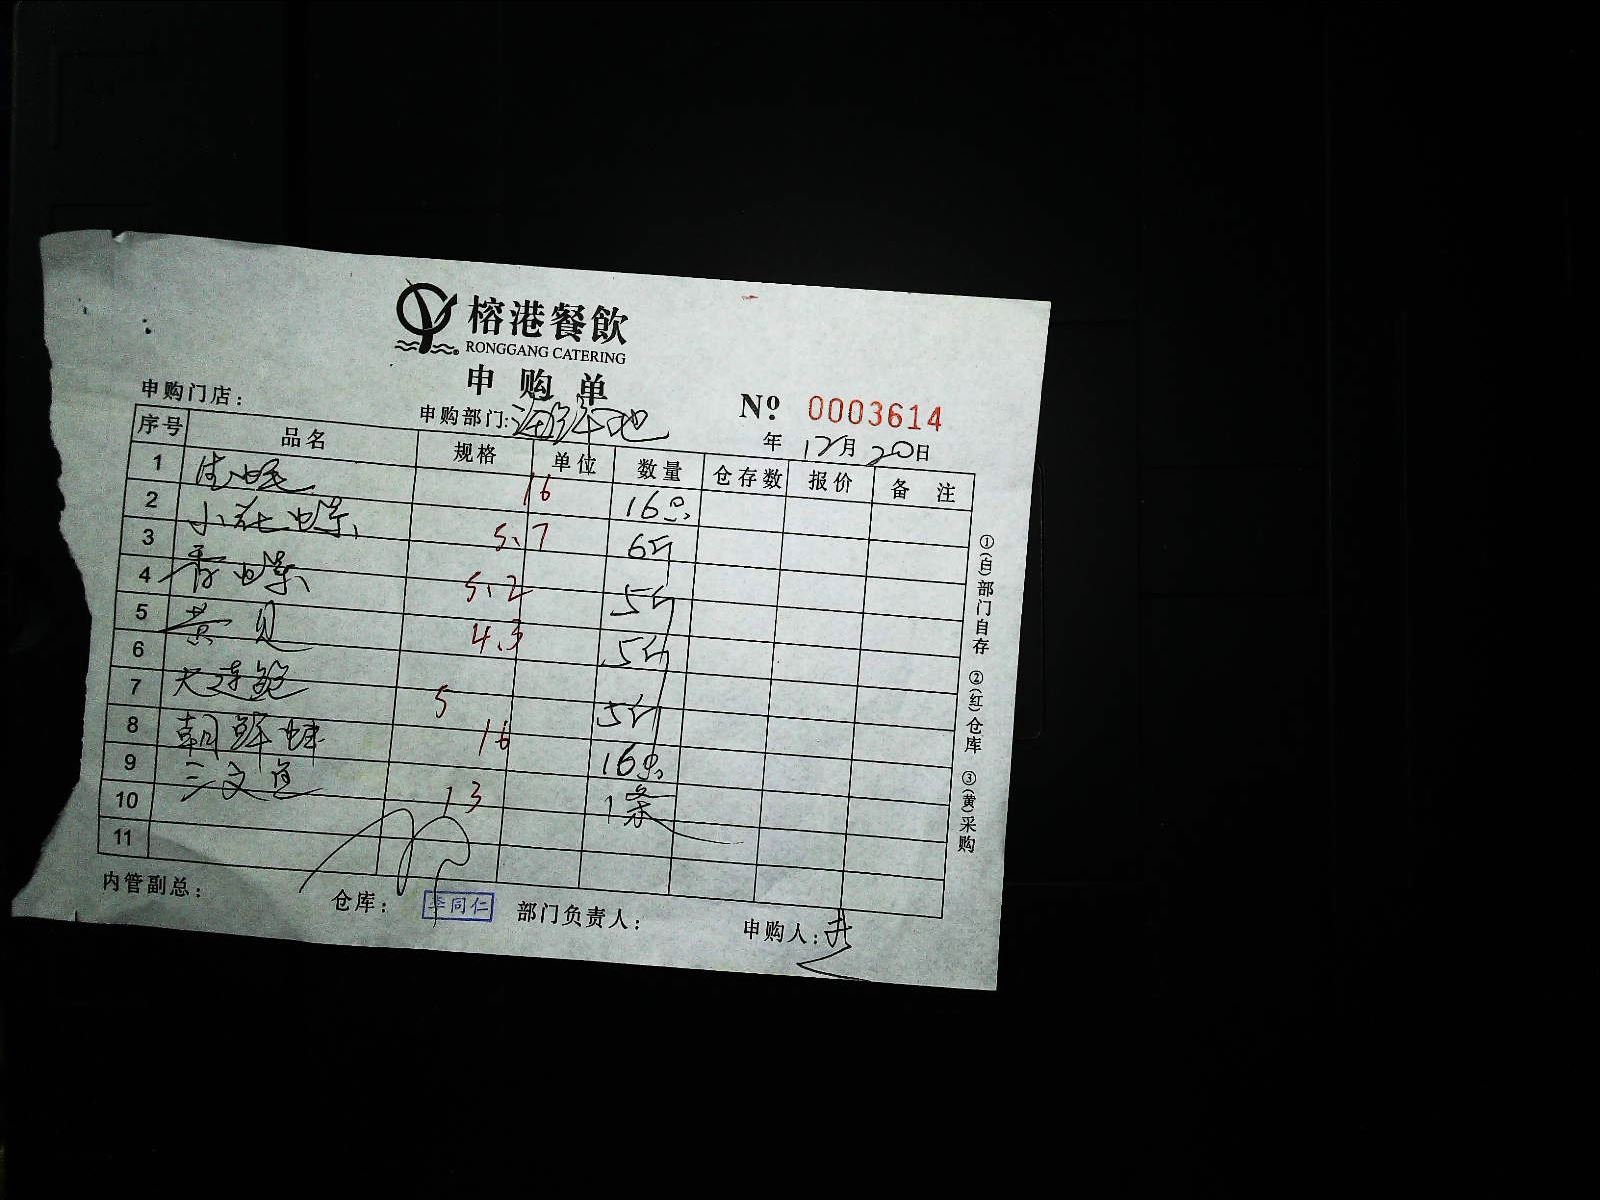 榕港餐飲
RONGGANG CATERING
申购单
申购门店: 申购部门:海鲜池 № 0003614
年 12月20日
序号 品名 规格 单位 数量 仓存数 报价 备 注
1 16 16只
2 小花螺 5.7 6斤
3 青螺 5.2 5斤
4 黄贝 4.3 5斤
5
6 大连鲍 5 5斤
7 朝鲜蚌 16 16只
8 三文鱼 13 1条
9
10
11
内管副总: 仓库: 李同仁 部门负责人: 申购人:
①(白)部门自存 ②(红)仓库 ③(黄)采购